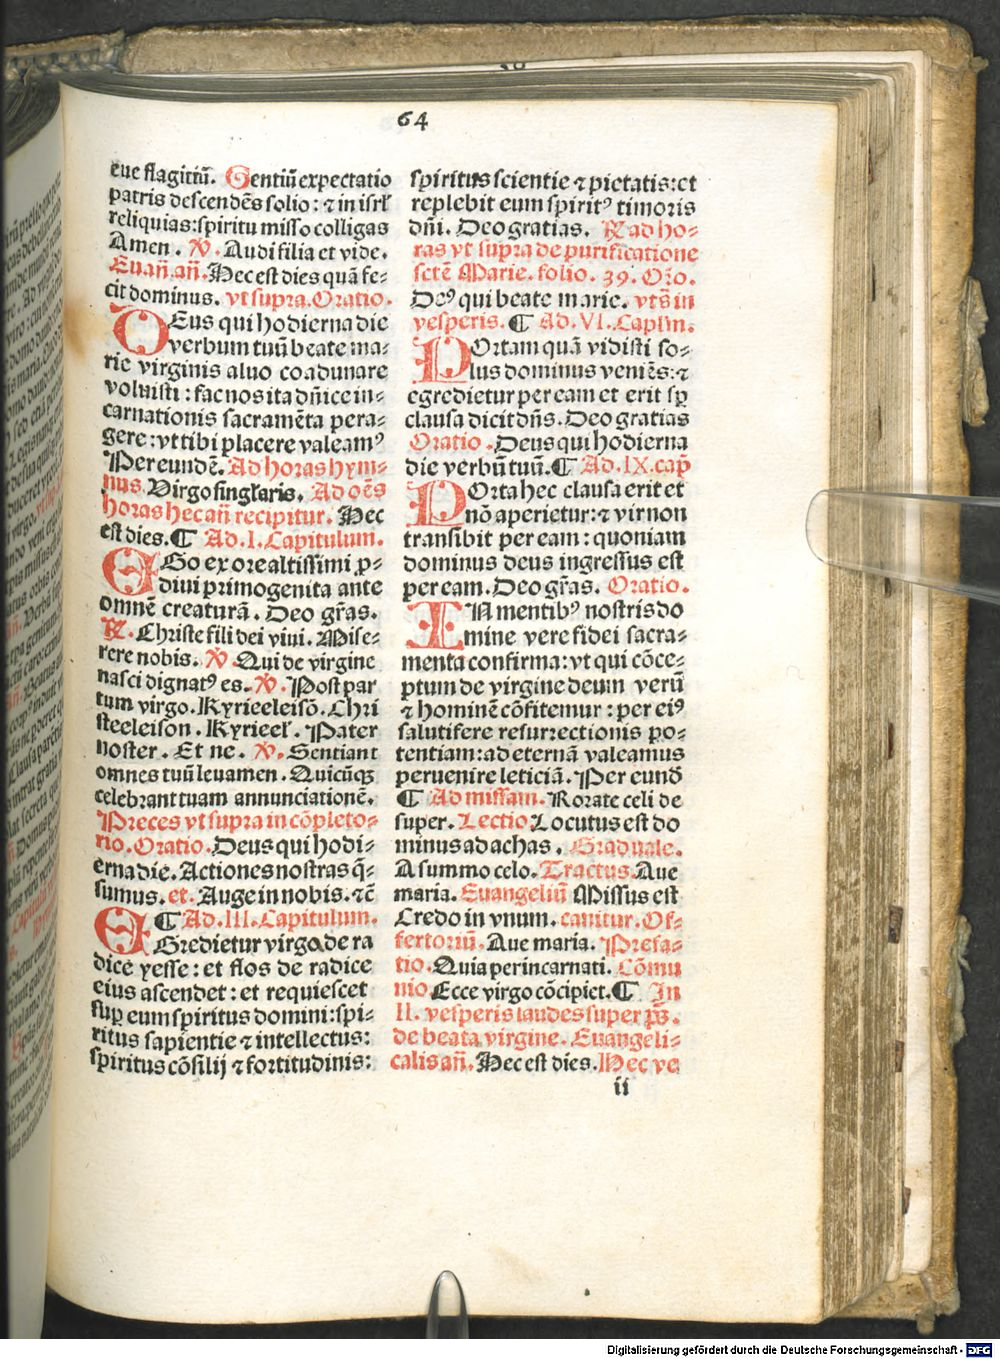 64
eue flagitiũ. Gentiũ expectatio
patris descendẽs solio: ⁊ in isrł
reliquias: spiritu misso colligas
Amen. ℣. Audi filia et vide.
Euañ. añ. Hec est dies quã fe-
cit dominus. vt supra. Oratio.
DEus qui hodierna die
verbum tuũ beate ma-
rie virginis aluo coadunare
voluisti: fac nos ita dñice in-
carnationis sacramẽta pera-
gere: vt tibi placere valeamꝰ
Per eundẽ. Ad horas hym-
nus. Virgo singłaris. Ad oẽs
horas hec añ recipitur. Hec
est dies. ¶ Ad. I. Capitulum.
EGo ex ore altissimi ꝓ-
diui primogenita ante
omnẽ creaturã. Deo grãs.
℟. Christe fili dei viui. Mise-
rere nobis. ℣. Qui de virgine
nasci dignatꝰ es. ℣. Post par
tum virgo. Kyrieeleisõ. Chri
steeleison. Kyrieeł. Pater
noster. Et ne. ℣. Sentiant
omnes tuũ leuamen. Quicũqꝫ
celebrant tuam annunciationẽ.
Preces vt supra in cõpleto-
rio. Oratio. Deus qui hodi-
erna die. Actiones nostras q̃-
sumus. et. Auge in nobis. ⁊c̃
¶ Ad. III. Capitulum.
EGredietur virga de ra
dice yesse: et flos de radice
eius ascendet: et requiescet
suꝑ eum spiritus domini: spi-
ritus sapientie ⁊ intellectus:
spiritus cõsilij ⁊ fortitudinis:
spiritus scientie ⁊ pietatis: et
replebit eum spiritꝰ timoris
dñi. Deo gratias. ℟ ad ho-
ras vt supra de purificatione
scte Marie. folio. 39. Orõ.
Deꝰ qui beate marie. vts̃ in
vesperis. ¶ Ad. VI. Caplm̃.
POrtam quã vidisti so-
lus dominus veniẽs: ⁊
egredietur per eam et erit sꝑ
clausa dicit dñs. Deo gratias
Oratio. Deus qui hodierna
die verbũ tuũ. ¶ Ad. IX. cap̃
POrta hec clausa erit et
nõ aperietur: ⁊ vir non
transibit per eam: quoniam
dominus deus ingressus est
per eam. Deo grãs. Oratio.
IN mentibꝰ nostris do
mine vere fidei sacra-
menta confirma: vt qui cõce-
ptum de virgine deum verũ
⁊ hominẽ cõfitemur: per eiꝰ
salutifere resurrectionis po-
tentiam: ad eternã valeamus
peruenire leticiã. Per eund̃
¶ Ad missam. Rorate celi de
super. Lectio Locutus est do
minus ad achas. Graduale.
A summo celo. Tractus. Aue
maria. Euangeliũ Missus est
Credo in vnum. canitur. Of-
fertoriũ. Aue maria. Prefa-
tio. Quia per incarnati. Cõmu
nio. Ecce virgo cõcipiet. ¶ In
II. vesperis laudes super ps̃.
de beata virgine. Euangeli-
calis añ. Hec est dies. Hec ve
ii
Digitalisierung gefördert durch die Deutsche Forschungsgemeinschaft - DFG